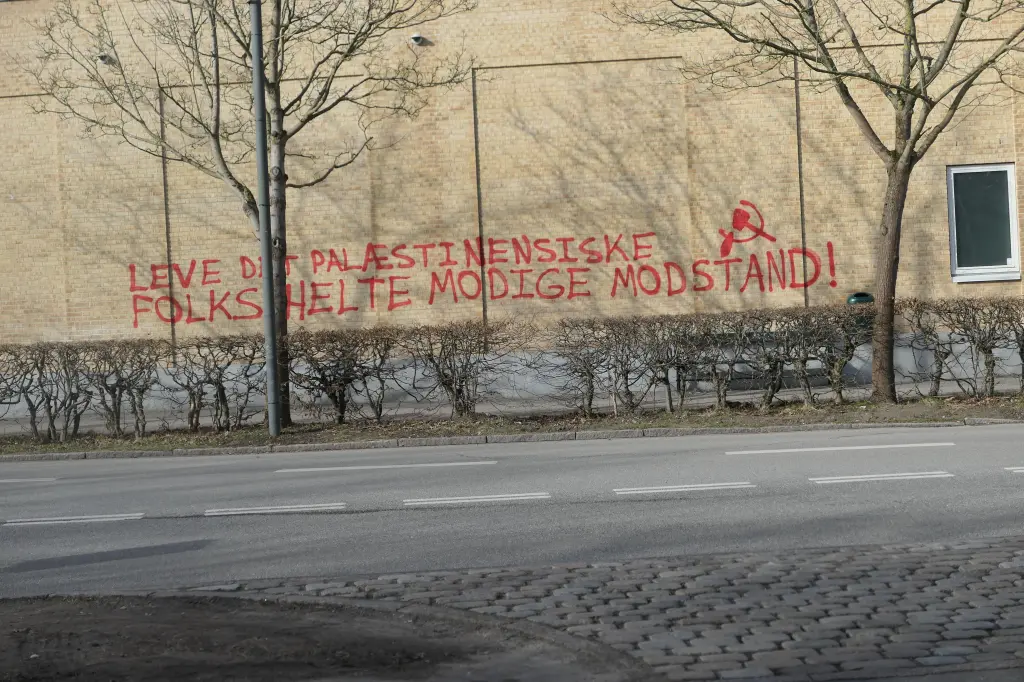 LEVE DET PALÆSTINENSISKE
FOLKS HELTE MODIGE MODSTAND!